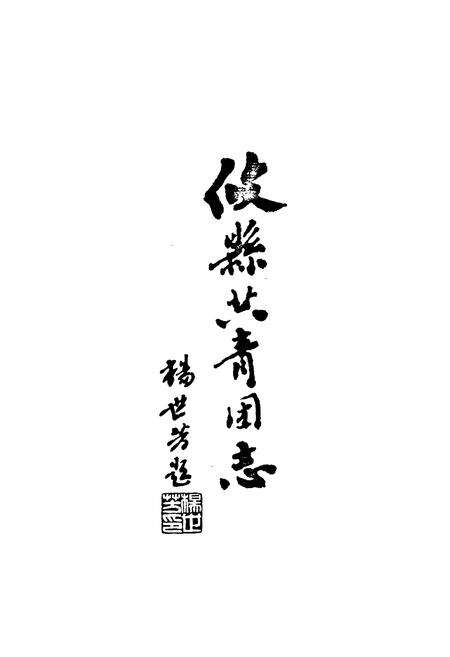 攸縣共青团志
楊世芳题
楊世芳印